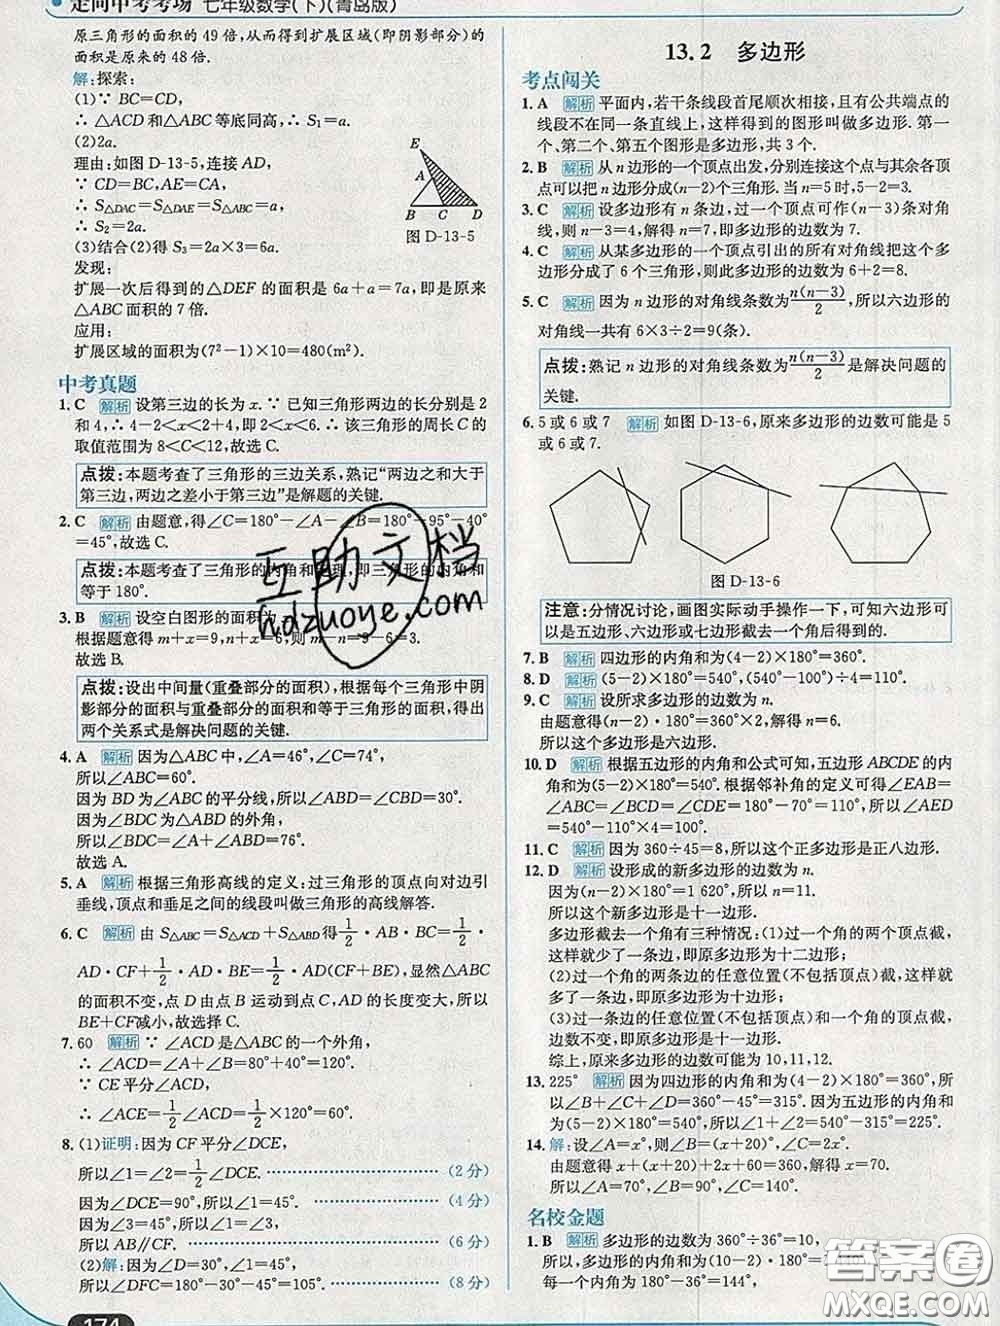 走向中考考场 七年级数学(下)(青岛版)
原三角形的面积的49倍,从而得到扩展区域(即阴影部分)的
面积是原来的48倍.
解:探索:
(1)∵ BC=CD,
∴ △ACD和△ABC等底同高,∴ S₁=a.
(2)2a.
理由:如图D-13-5,连接AD,
∵ CD=BC,AE=CA,
∴ S△DAC=S△DAE=S△ABC=a,
∴ S₂=2a.
(3)结合(2)得 S₃=2a×3=6a.
E
A
B C D
图 D-13-5
发现:
扩展一次后得到的△DEF的面积是6a+a=7a,即是原来
△ABC面积的7倍.
应用:
扩展区域的面积为(7²-1)×10=480(m²).
中考真题
1. C 解析 设第三边的长为x.∵ 已知三角形两边的长分别是2
和4,∴ 4-2<x<2+4,即2<x<6.∴ 该三角形的周长C的
取值范围为8<C<12,故选C.
点拨:本题考查了三角形的三边关系,熟记“两边之和大于
第三边,两边之差小于第三边”是解题的关键.
2. C 解析 由题意,得∠C=180°-∠A-∠B=180°-95°-40°
=45°,故选C.
点拨:本题考查了三角形的内角和定理,即三角形的内角和
等于180°.
3. B 解析 设空白图形的面积为
根据题意得m+x=9,n+x=6,则m-n=9-6=3.
故选B.
点拨:设出中间量(重叠部分的面积),根据每个三角形中阴
影部分的面积与重叠部分的面积和等于三角形的面积,得出
两个关系式是解决问题的关键.
4. A 解析 因为△ABC中,∠A=46°,∠C=74°,
所以∠ABC=60°.
因为BD为∠ABC的平分线,所以∠ABD=∠CBD=30°.
因为∠BDC为△ABD的外角,
所以∠BDC=∠A+∠ABD=76°.
故选A.
5. A 解析 根据三角形高线的定义:过三角形的顶点向对边引
垂线,顶点和垂足之间的线段叫做三角形的高线解答.
6. C 解析 由 S△ABC=S△ACD+S△ABD得1/2·AB·BC=1/2·
AD·CF+1/2·AD·BE=1/2·AD(CF+BE),显然△ABC
的面积不变,点D由点B运动到点C,AD的长度变大,所以
BE+CF减小,故选择C.
7. 60 解析 ∵ ∠ACD是△ABC的一个外角,
∴ ∠ACD=∠A+∠B=80°+40°=120°.
∵ CE平分∠ACD,
∴ ∠ACE=1/2∠ACD=1/2×120°=60°.
8. (1)证明:因为CF平分∠DCE,
所以∠1=∠2=1/2∠DCE. (2分)
因为∠DCE=90°,所以∠1=45°. (4分)
因为∠3=45°,所以∠1=∠3,
所以AB∥CF. (6分)
(2)解:因为∠D=30°,∠1=45°,
所以∠DFC=180°-30°-45°=105°. (8分)
174
13.2 多边形
考点闯关
1. A 解析 平面内,若干条线段首尾顺次相接,且有公共端点的
线段不在同一条直线上,这样得到的图形叫做多边形.第一
个、第二个、第五个图形是多边形,共3个.
2. B 解析 从n边形的一个顶点出发,分别连接这个点与其余各顶
点可以把n边形分成(n-2)个三角形.当n=5时,5-2=3.
3. C 解析 设多边形有n条边,过一个顶点可作(n-3)条对角
线,则n-3=4,解得n=7,即多边形的边数为7.
4. C 解析 从某多边形的一个顶点引出的所有对角线把这个多
边形分成了6个三角形,则此多边形的边数为6+2=8.
5. C 解析 因为n边形的对角线条数为n(n-3)/2,所以六边形的
对角线一共有6×3÷2=9(条).
点拨:熟记n边形的对角线条数为n(n-3)/2是解决问题的
关键.
6. 5或6或7 解析 如图D-13-6,原来多边形的边数可能是5
或6或7.
图 D-13-6
注意:分情况讨论,画图实际动手操作一下,可知六边形可
以是五边形、六边形或七边形截去一个角后得到的.
7. B 解析 四边形的内角和为(4-2)×180°=360°.
8. D 解析 (5-2)×180°=540°,(540°-100°)÷4=110°.
9. C 解析 设所求多边形的边数为n.
由题意得(n-2)·180°=360°×2,解得n=6.
所以这个多边形是六边形.
10. D 解析 根据五边形的内角和公式可知,五边形ABCDE的内
角和为(5-2)×180°=540°.根据邻补角的定义可得∠EAB=
∠ABC=∠BCD=∠CDE=180°-70°=110°,所以∠AED
=540°-110°×4=100°.
11. C 解析 因为360÷45=8,所以这个正多边形是正八边形.
12. D 解析 设形成的新多边形的边数为n.
因为(n-2)×180°=1 620°,所以n=11.
所以这个新多边形是十一边形.
多边形截去一个角有三种情况:(1)过一个角的两个顶点截,
这样就少了一条边,即原多边形为十二边形;
(2)过一个角的两条边的任意位置(不包括顶点)截,这样就
多了一条边,即原多边形为十边形;
(3)过一条边的任意位置(不包括顶点)和一个角的顶点截,
边数不变,即原多边形是十一边形.
综上,原来多边形的边数可能为10,11,12.
13. 225° 解析 因为四边形的内角和为(4-2)×180°=360°,所
以∠B+∠C+∠D=360°-∠A=360°-45°=315°.因为五边形的
内角和为(5-2)×180°=540°,所以∠1+∠2=540°-315°=225°.
14. 解:设∠A=x°,则∠B=(x+20)°,∠C=2x°.
由题意得x+(x+20)+2x+60=360,解得x=70.
所以∠A=70°,∠B=90°,∠C=140°.
名校金题
1. B 解析 多边形的边数为360°÷36°=10,
所以多边形的内角和为(10-2)×180°=1
每一个内角为180°-36°=144°,
互助文档
hdzuoye.com
答案圈
MXQE.COM